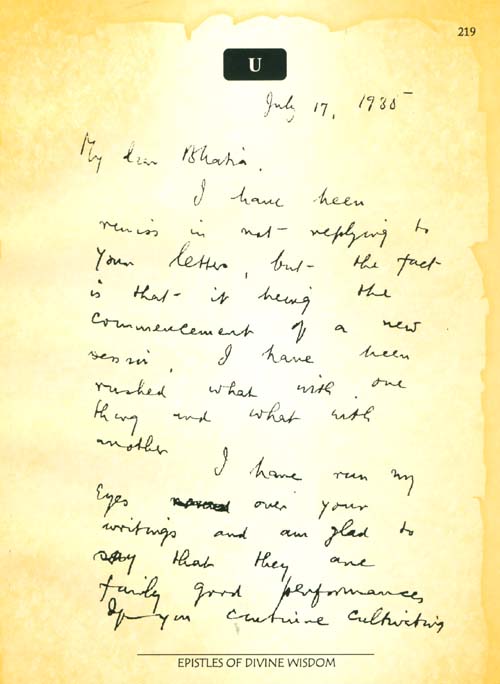 219
U
July 17, 1935
My dear Bhatia,
I have been
remiss in not replying to
your letter, but the fact
is that it being the
commencement of a new
session, I have been
rushed what with one
thing and what with
another
I have run my
eyes over your
writings and am glad to
say that they are
fairly good performances
If you continue cultivating
EPISTLES OF DIVINE WISDOM